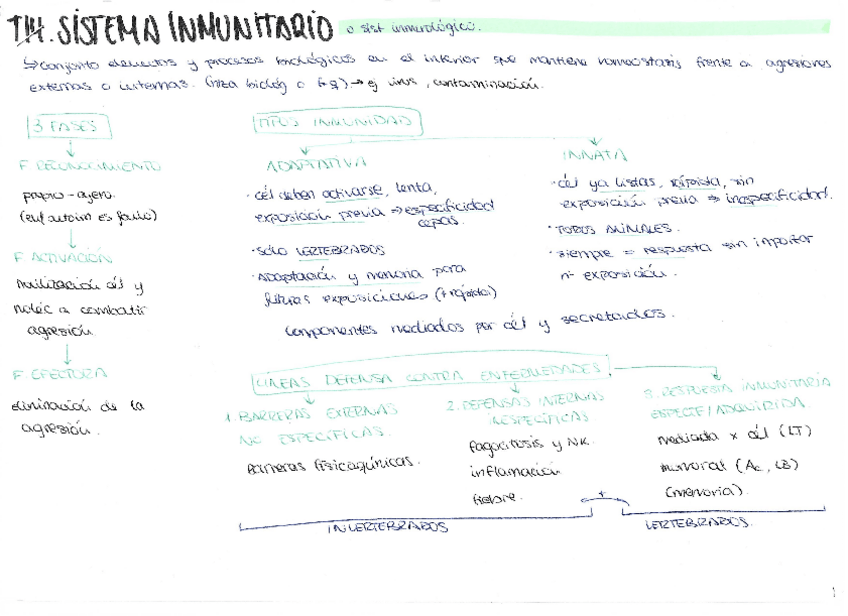 T14. SISTEMA INMUNITARIO o sist inmunológico.
↳ Conjunto elementos y procesos biológicos en el interior que mantiene homeostasis frente a agresiones
externas o internas. (nza biológ o fq) → ej virus, contaminación.
3 FASES
F RECONOCIMIENTO
propio - ajeno.
(enf autoinm es fallo)
F ACTIVACIÓN
movilización cél y
moléc a combatir
agresión
F EFECTORA
eliminación de la
agresión.
TIPOS INMUNIDAD
ADAPTATIVA
· cél deben activarse, lenta,
exposición previa ⇒ especificidad
cepas.
· SÓLO VERTEBRADOS
· Adaptación y memoria para
futuras exposiciones (+ rápida)
INNATA
· cél ya listas, rápida, sin
exposición previa ⇒ inespecificidad.
· TODOS ANIMALES.
· siempre = respuesta sin importar
nº exposición.
Componentes mediados por cél y secretados.
LÍNEAS DEFENSA CONTRA ENFERMEDADES
1. BARRERAS EXTERNAS
NO ESPECÍFICAS.
Barreras fisicoquímicas.
2. DEFENSAS INTERNAS
INESPECÍFICAS
fagocitosis y NK.
inflamación
fiebre.
3. RESPUESTA INMUNITARIA
ESPECIF/ADQUIRIDA
mediada x cél (LT)
humoral (Ac, LB)
(memoria).
INVERTEBRADOS
+
VERTEBRADOS.
1